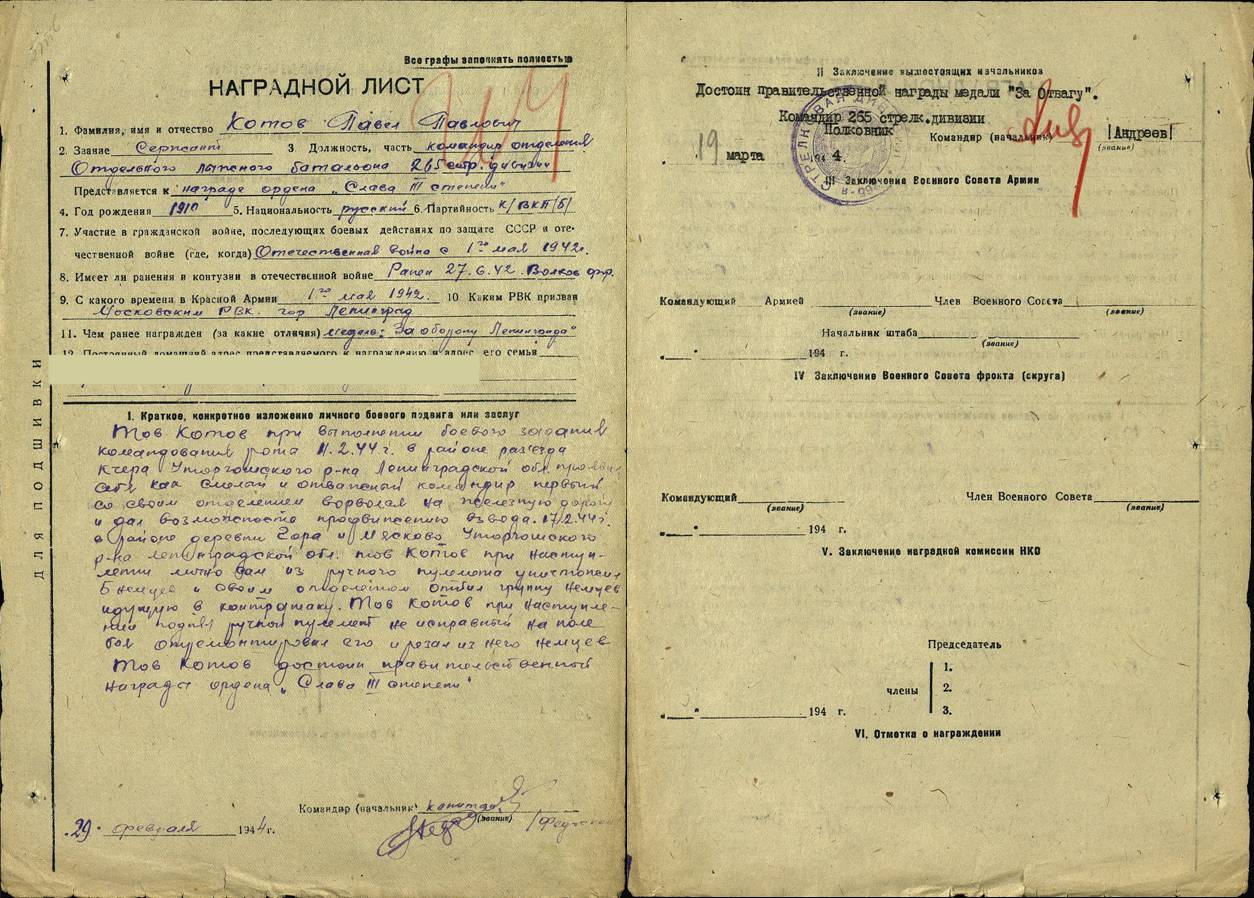 Все графы заполнять полностью
НАГРАДНОЙ ЛИСТ
1. Фамилия, имя и отчество Котов Павел Павлович
2. Звание Сержант 3 Должность, часть командир отделения
Отдельного лыжного батальона 265 стр. дивизии
Представляется к награде ордена „Слава III степени"
4. Год рождения 1910 5. Национальность русский 6. Партийность К/ВКП(б)
7. Участие в гражданской войне, последующих боевых действиях по защите СССР и оте-
чественной войне (где, когда) Отечественная война с 1го мая 1942г.
8. Имеет ли ранения и контузии в отечественной войне Ранен 27.6.42. Волхов фр.
9. С какого времени в Красной Армии 1го мая 1942. 10. Каким РВК призван
Московским РВК. гор Ленинград
11. Чем ранее награжден (за какие отличия) медаль: „За оборону Ленинграда"
12. Постоянный домашний адрес представляемого к награждению и адрес его семьи
ДЛЯ ПОДШИВКИ
I. Краткое, конкретное изложение личного боевого подвига или заслуг
Тов Котов при выполнении боевого задания
командования рота 11.2.44 г. в районе раз'езда
Кчера Уторгошского р-на Ленинградской обл. проявил
себя как смелый и отважный командир первый
со своим отделением ворвался на железную дорогу
и дал возможность продвижению взвода. 17.2.44г.
в районе деревни Гора и Мясково Уторгошского
р-на Ленинградской обл. тов Котов при наступ-
лении лично сам из ручного пулемета уничтожил
5 немцев и своим отделением отбил группу немцев
идущую в контратаку. Тов Котов при наступле-
нии поднял ручной пулемет не исправный на поле
боя отремонтировал его и резал из него немцев
Тов Котов достоин правительственной
награды ордена „Слава III степени"
Командир (начальник) капитан
(звание)
„29" февраля 1944 г.
II Заключение вышестоящих начальников
Достоин правительственной награды медали "За Отвагу".
Командир 265 стрелк.дивизии
Полковник Командир (начальник) /Андреев/
(звание)
19 марта 1944.
III Заключение Военного Совета Армии
Командующий Армией Член Военного Совета
(звание) (звание)
Начальник штаба
(звание)
„ " 194 г.
IV Заключение Военного Совета фронта (округа)
Командующий Член Военного Совета
(звание) (звание)
„ " 194 г.
V. Заключение наградной комиссии НКО
Председатель
члены
1.
2.
3.
„ " 194 г.
VI. Отметка о награждении